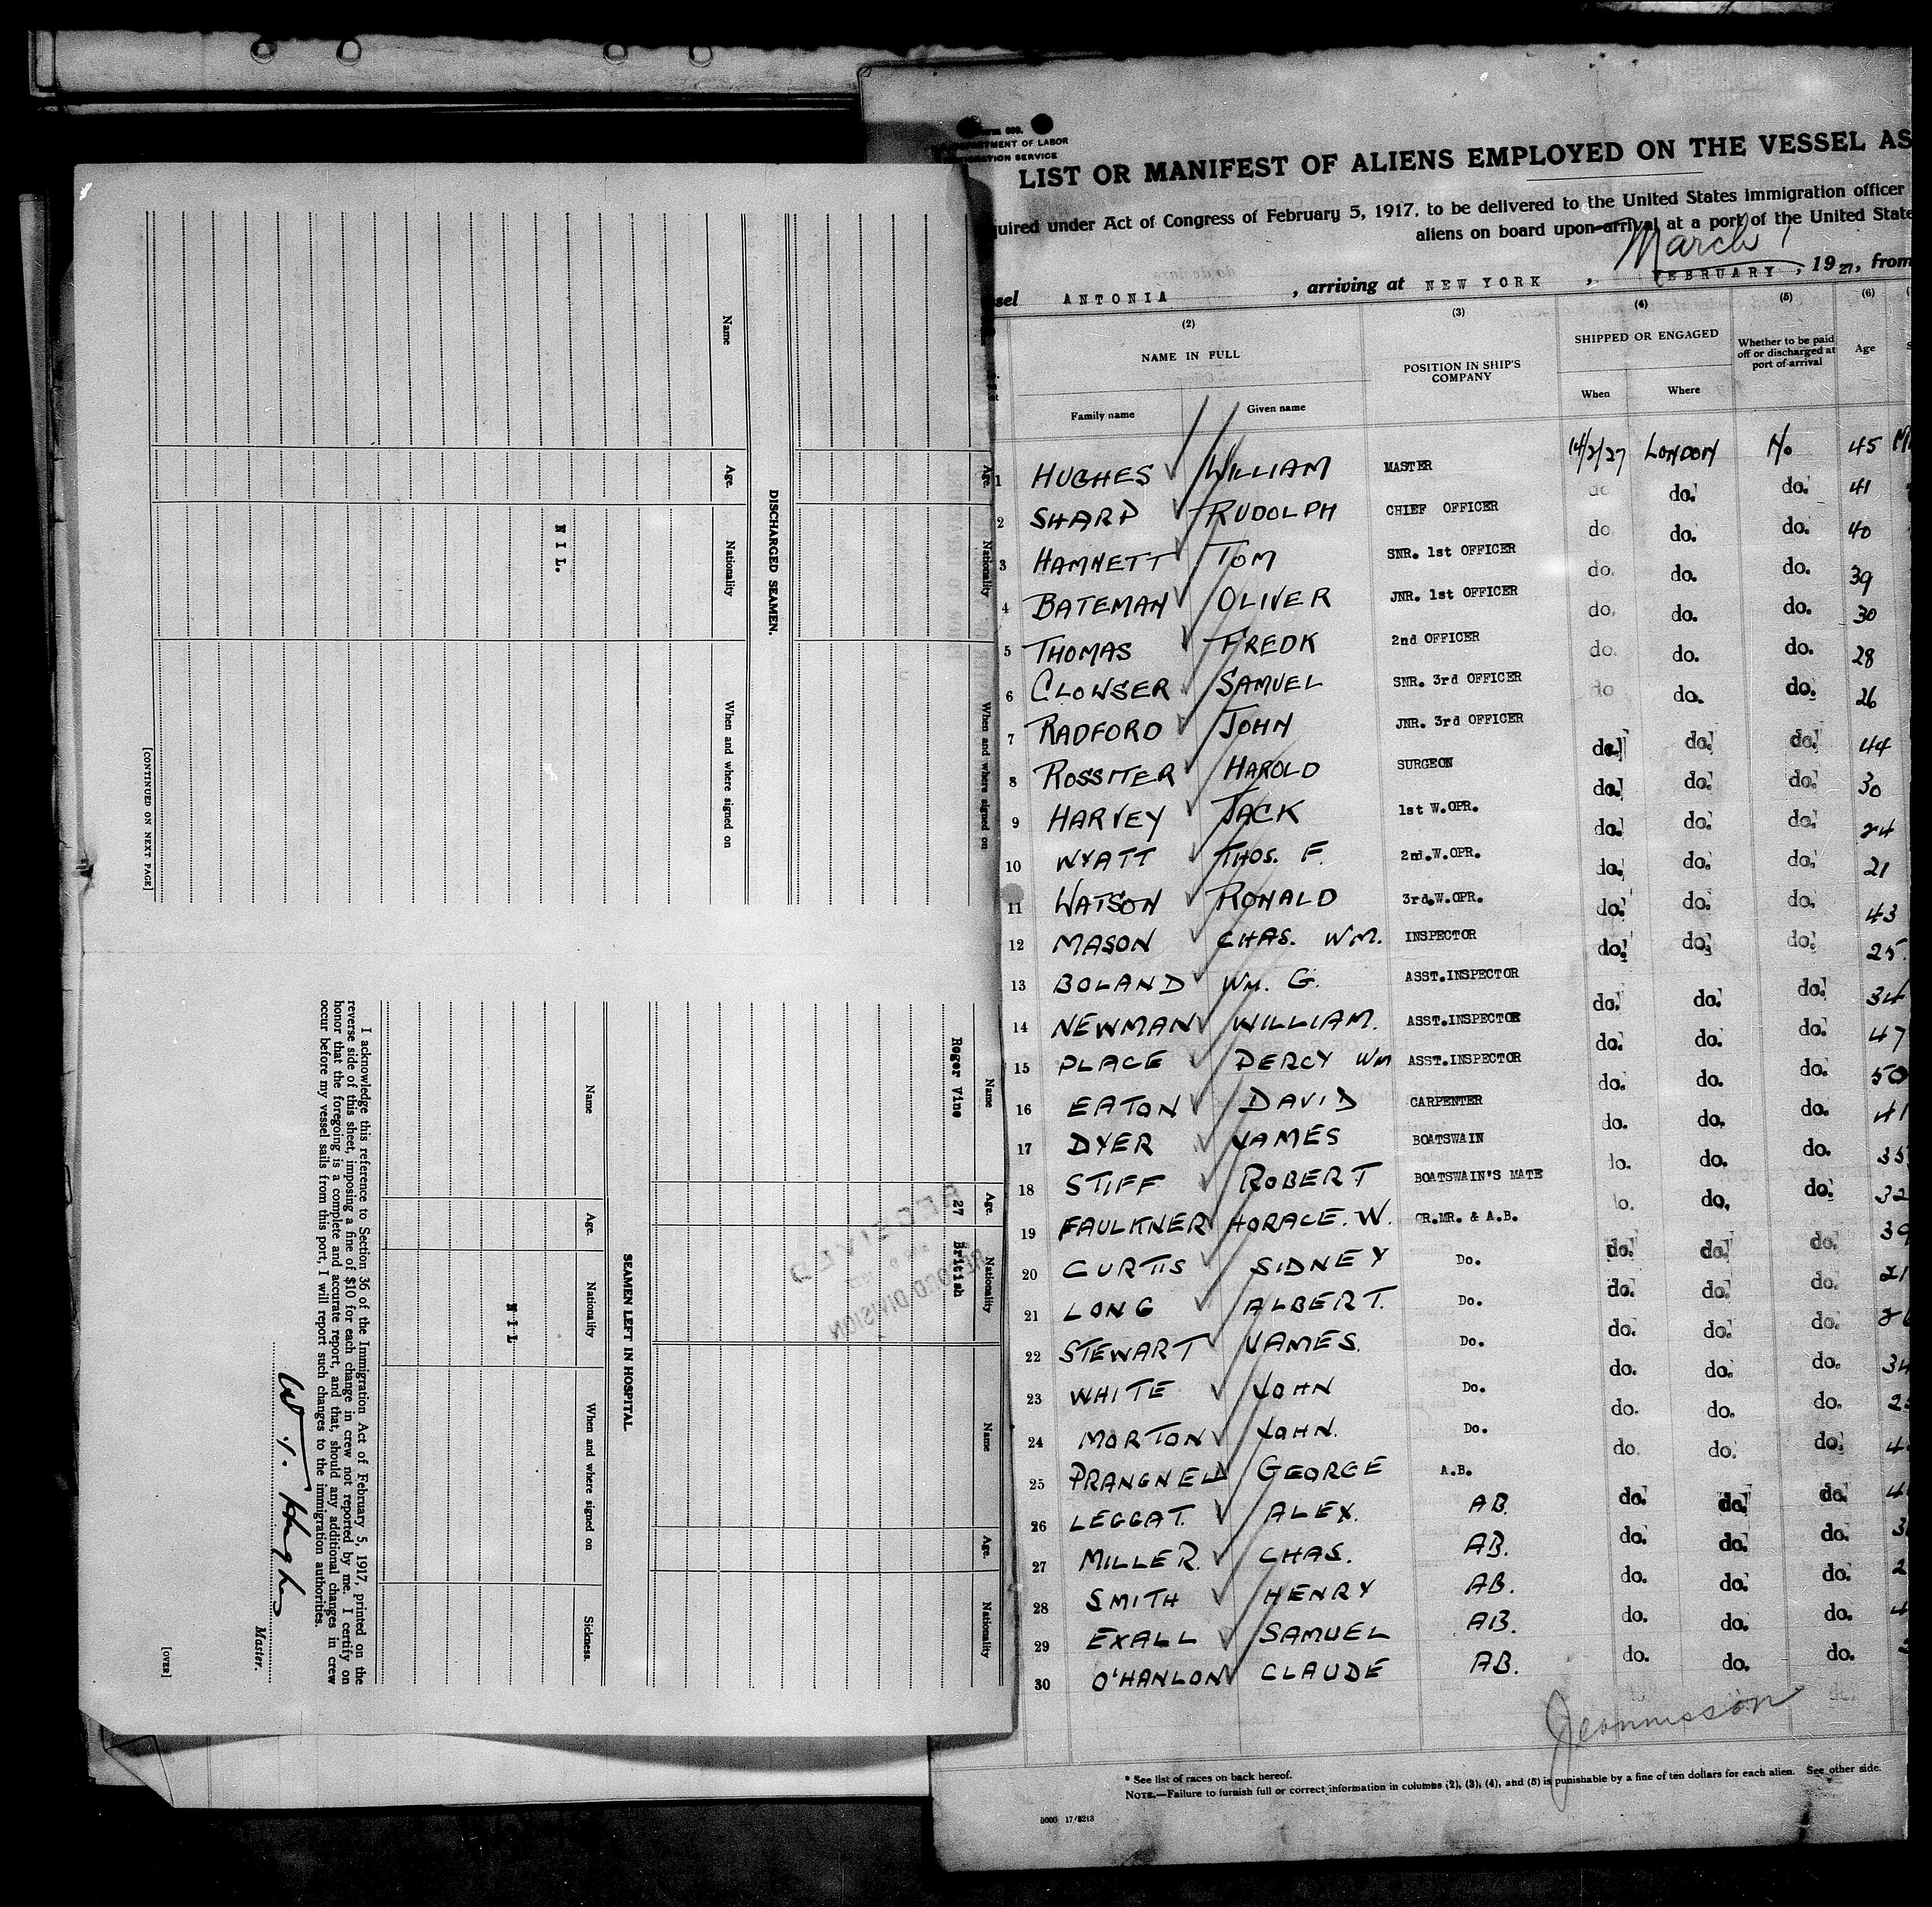 Name
Age.
Nationality
When and where signed on
Roger Vine 27 British
Name
Age.
Nationality
Name
Age.
Nationality
DISCHARGED SEAMEN.
Name
Age.
Nationality
When and where signed on
NIL.
[CONTINUED ON NEXT PAGE]
RECEIVED
RECORD DIVISION
SEAMEN LEFT IN HOSPITAL
Name
Age.
Nationality
When and where signed on
Sickness.
NIL
I acknowledge this reference to Section 36 of the Immigration Act of February 5, 1917, printed on the
reverse side of this sheet, imposing a fine of $10 for each change in crew not reported by me. I certify on
honor that the foregoing is a complete and accurate report, and that, should any additional changes in crew
occur before my vessel sails from this port, I will report such changes to the immigration authorities.
Master.
[OVER]
DEPARTMENT OF LABOR
IMMIGRATION SERVICE
LIST OR MANIFEST OF ALIENS EMPLOYED ON THE VESSEL AS
uired under Act of Congress of February 5, 1917, to be delivered to the United States immigration officer
aliens on board upon arrival at a port of the United State
March 1
sel ANTONIA , arriving at NEW YORK , FEBRUARY , 1927, from
(2) (3) (4) (5) (6)
NAME IN FULL
Family name Given name
POSITION IN SHIP'S COMPANY
SHIPPED OR ENGAGED
When Where
Whether to be paid off or discharged at port of arrival
Age
1 HUGHES WILLIAM MASTER 14/2/27 LONDON No 45
2 SHARP RUDOLPH CHIEF OFFICER do do. do. 41
3 HAMNETT TOM SNR. 1st OFFICER do. do. do. 40
4 BATEMAN OLIVER JNR. 1st OFFICER do. do. do. 39
5 THOMAS FREDK 2nd OFFICER do. do. do. 30
6 CLOWSER SAMUEL SNR. 3rd OFFICER do. do. do. 28
7 RADFORD JOHN JNR. 3rd OFFICER do do. do. 26
8 ROSSITER HAROLD SURGEON do. do. do. 44
9 HARVEY JACK 1st W.OPR. do. do. do. 30
10 WYATT THOS. F. 2nd.W.OPR. do. do. do. 24
11 WATSON RONALD 3rd.W.OPR. do. do. do. 21
12 MASON CHAS. WM. INSPECTOR do. do. do. 43
13 BOLAND WM. G. ASST.INSPECTOR do. do. do. 25.
14 NEWMAN WILLIAM. ASST.INSPECTOR do. do. do. 34
15 PLACE PERCY WM ASST.INSPECTOR do. do. do. 47
16 EATON DAVID CARPENTER do. do. do. 50
17 DYER JAMES BOATSWAIN do. do. do. 41
18 STIFF ROBERT BOATSWAIN'S MATE do. do. do. 35
19 FAULKNER HORACE. W. QR.MR. & A.B. do. do. do. 32
20 CURTIS SIDNEY Do. do. do. do. 39
21 LONG ALBERT. Do. do. do. do. 21
22 STEWART JAMES. Do. do. do. do.
23 WHITE JOHN Do. do. do. do. 34
24 MORTON JOHN. Do. do. do. do.
25 PRANGNELL GEORGE A.B. do. do. do.
26 LEGGAT. ALEX. AB. do. do. do.
27 MILLER. CHAS. AB. do. do. do.
28 SMITH HENRY AB. do. do. do.
29 EXALL SAMUEL AB. do. do. do.
30 O'HANLON CLAUDE AB. do. do. do.
* See list of races on back hereof.
NOTE.—Failure to furnish full or correct information in columns (2), (3), (4), and (5) is punishable by a fine of ten dollars for each alien. See other side.
5000 17/8213